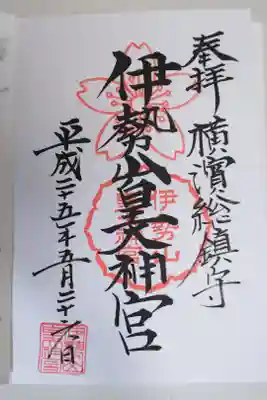 奉拝 横濱総鎮守
伊勢山皇大神宮
平成二十五年五月二十六日